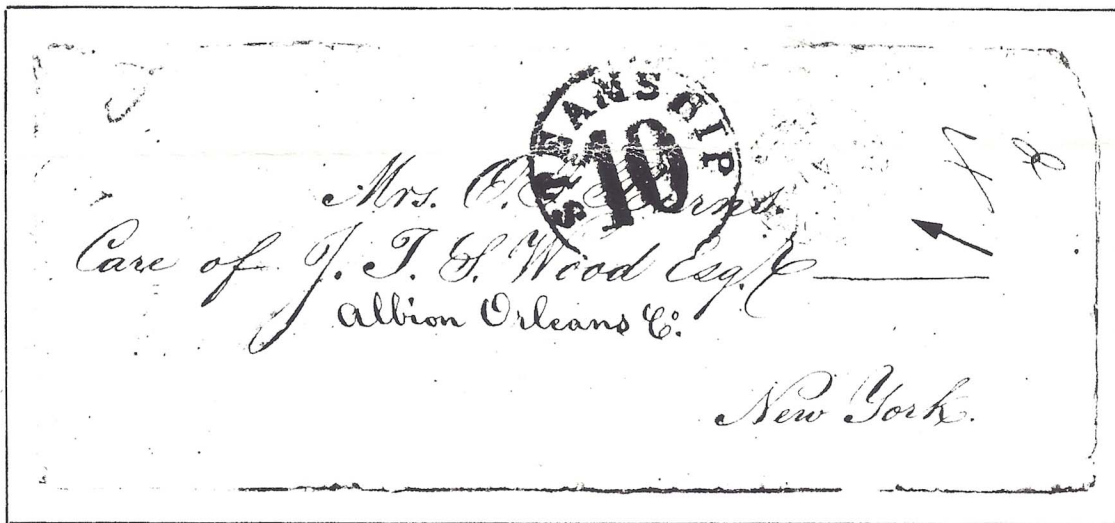 STEAMSHIP
10
Mrs. O.
Care of J. T. S. Wood Esq.
Albion Orleans Co.
New York.